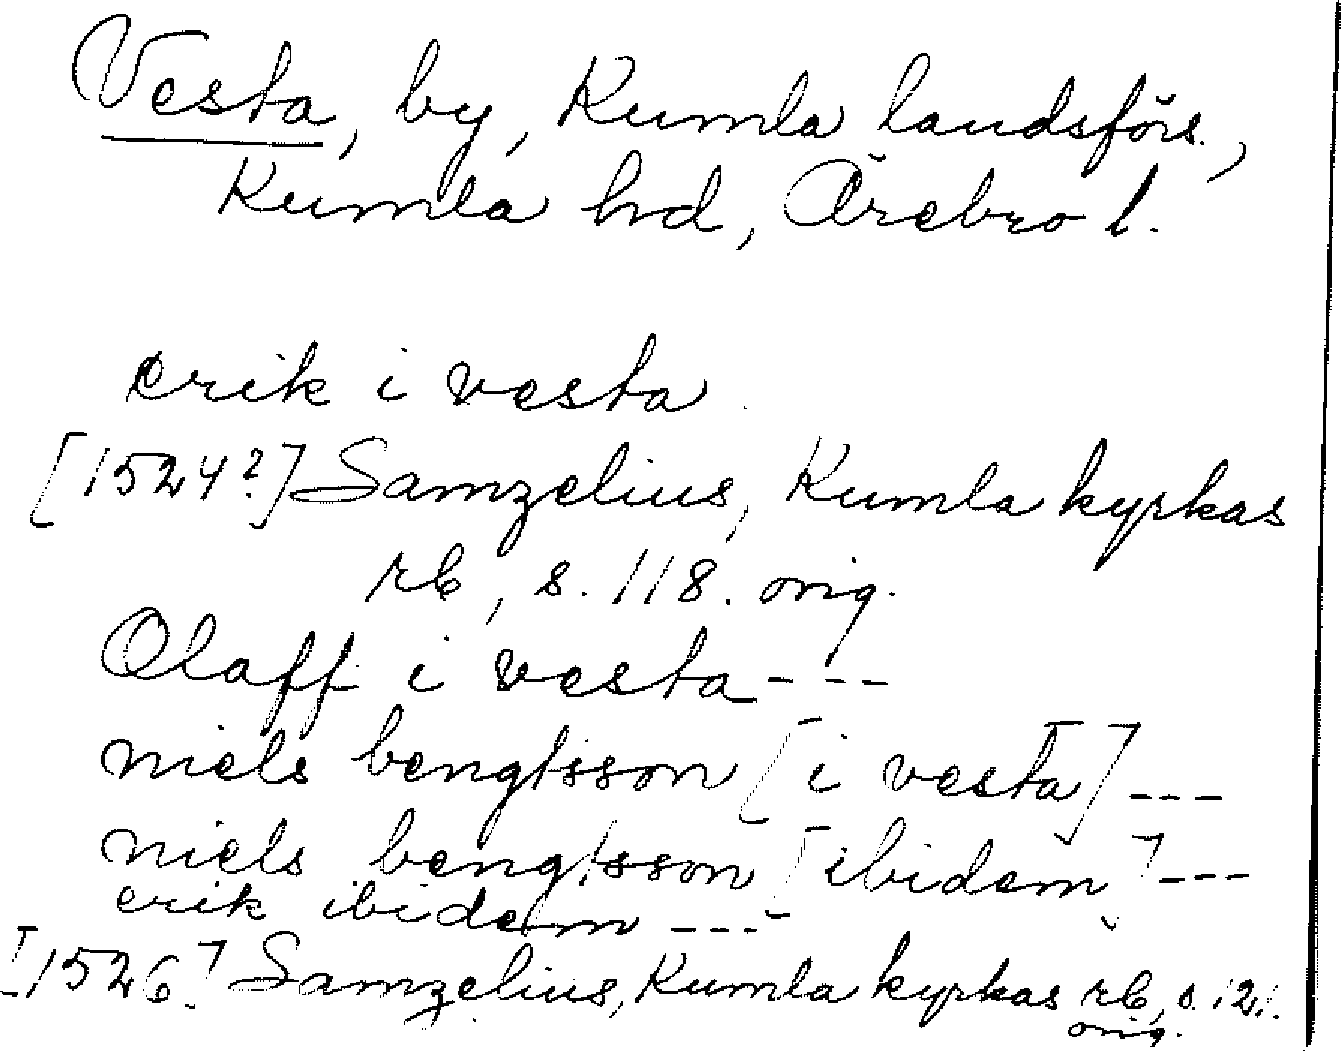 Vesta, by, Kumla landsförs.,
Kumla hd, Örebro l.
erik i vesta
[1524?] Samzelius, Kumla kyrkas
rb, s. 118. orig.
Olaff i vesta ---
niels bengtsson [i vesta] ---
niels bengtsson [ibidem] ---
erik ibidem ---
[1526] Samzelius, Kumla kyrkas rb, s. 121.
orig.